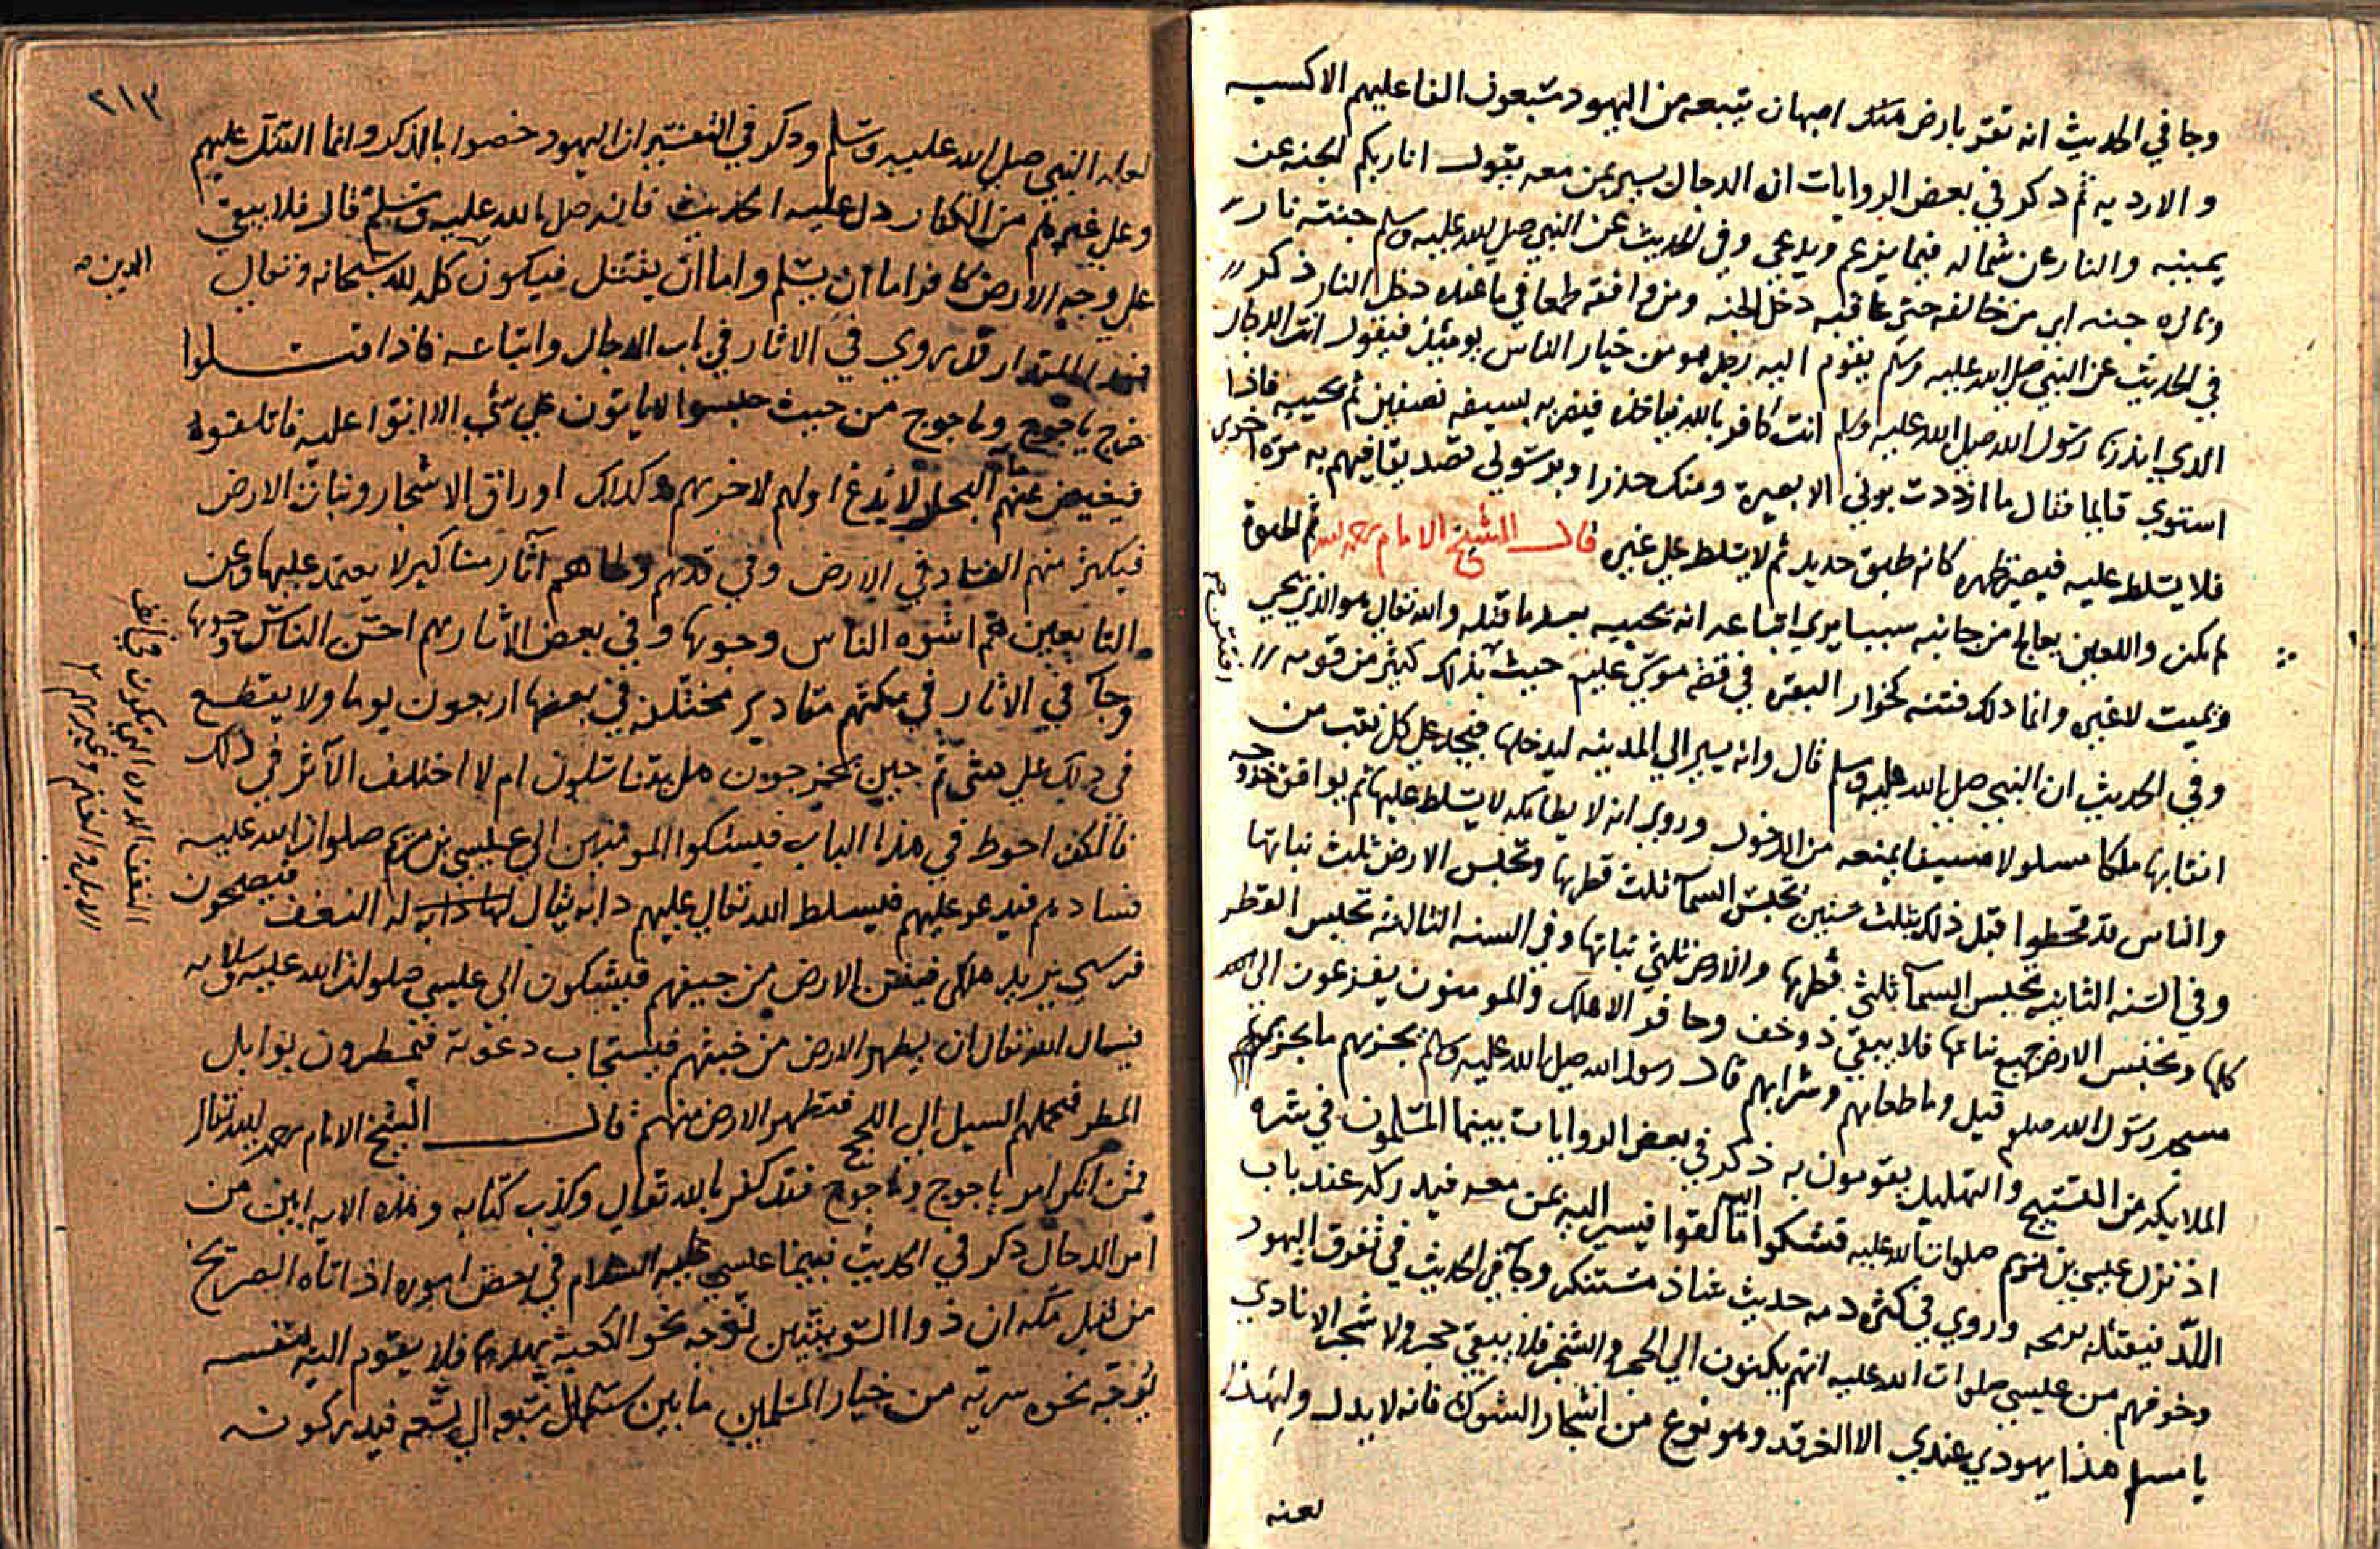 وجا في الحديث انه تعقر بارض اصبهان يتبعه من اليهود سبعون الفا عليهم الاكسيه
و الارديه ثم ذكر في بعض الروايات ان الدجال يسير بمن معه يقول انا ربكم الجنه عن
يمينه والنار عن شماله فيما يزعم ويدعي وفي الحديث عن النبي صلى الله عليه وسلم جنته نار
وناره جنه اي من خالفه حتى عاقبه دخل الجنه ومن وافقه طمعا في ما عنده دخل النار ذكر
في الحديث عن النبي صلى الله عليه وسلم يقوم اليه رجل هو من خيار الناس يومئذ فيقول انت الدجال
الذي انذرنا رسول الله صلى الله عليه وسلم انت كافر بالله فياخذه فيضربه بسيفه نصفين ثم يحييه فاذا
استوي قايما فقال ما ازددت بوني الا بصيرة ومنك حذرا وبرسولي تصديقا فيهم به مرة اخرى
فلا يسلط عليه فيصير ظهره كانه طبق حديد ثم لا يسلط على غيره قال الشيخ الامام رحمه الله ثم
لم يكن واللعين يعالج من جانبه سببا يري اتباعه انه يحييه بعد ما قتله والله تعالى هو الذي يحيي
ويميت لا غير وانما ذلك فتنه كخوار البقره في قصه موسى عليه حيث بذلك كثير من قومه
افتتن
وفي الحديث ان النبي صلى الله عليه وسلم قال وانه يسير الي المدينه ليدخلها فيجد على كل نقب من
انقابها ملكا مسلولا سيفا يمنعه من الدخول وروي انه لا يطا مكه لا يسلط عليها ثم يوافق خروجه
والناس قد قحطوا قبل ذلك بثلث سنين تحبس السمآ ثلث قطرها وتحبس الارض ثلث نباتها
وفي السنه الثانيه تحبس السمآ ثلثي قطرها والارض ثلثي نباتها وفي السنه الثالثه تحبس القطر
كلها وتحبس الارض جميع نباتها فلا يبقي ذو خف وحافر الا هلك والمومنون يفزعون الى
مسجد رسول الله صلعم قيل وما طعامهم وشرابهم قال رسول الله صلى الله عليه وسلم يجزيهم ما يجزي
الملايكه من التسبيح والتهليل يقومون به ذكر في بعض الروايات بينما المسلمون في
اذ نزل عيسى بن مريم صلوات الله عليه فشكوا اليه ما لقوا فيسير اليه بمن معه فيدركه عند باب
اللد فيقتله برمحه وروي في كثره دمه حديث شاذ مستنكر وجآ في الحديث في تفرق اليهود
وخوفهم من عيسى صلوات الله عليه انهم يكمنون الي الحجر والشجر فلا يبقي حجر ولا شجر الا نادي
يا مسلم هذا يهودي عندي الا الغرقد وهو نوع من اشجار الشوك فانه لا يدل ولهذا
لعنه
٢١٣
لعنه النبي صلى الله عليه وسلم وذكر في التفسير ان اليهود خصوا بالذكر وانما القتل عليهم
وعلى غيرهم من الكفار دل عليه الحديث فانه صلى الله عليه وسلم قال فلا يبقى
على وجه الارض كافر اما ان يسلم واما ان يقتل فيكون كله لله سبحانه وتعالى
الدين
المقدار قد روي في الاثار في باب الدجال واتباعه فاذا قتلوا
خرج ياجوج وماجوج من حيث حبسوا لا ياتون على شي الا اتوا عليه فاتلفوه
فيغيض عنهم مآ البحار لا يدع اولهم لاخرهم وكذلك اوراق الاشجار ونبات الارض
فيكثر منهم الفساد في الارض وفي قدهم آثار مناكير لا يعتمد عليها وعن
التابعين هم اشوه الناس وجوها وفي بعض الاثار هم احسن الناس وجوها
وجآ في الاثار في مكثهم مقادير مختلفه في بعضها اربعون يوما ولا يقطع
في ذلك على شي ثم حين يخرجون هل يقاتلون ام لا اختلف الآثر في ذلك
فالكف احوط في هذا الباب فيشكوا المومنين الي عيسى بن مريم صلوات الله عليه
فسادهم فيدعو عليهم فيسلط الله تعالي عليهم دابه يقال له النغف فيصبحون
النغف الدوده التي تكون في انف
الابل والغنم وغيرهم
فرسي فينتن الارض من جيفهم فيشكون الى عيسى صلوات الله عليه وسلامه
فيسال الله تعالى ان يطهر الارض من خبثهم فيستجاب دعوته فيمطرون بوابل
المطر فيحملهم السيل الي اللجج فتطهر الارض منهم قال الشيخ الامام رحمه الله تعالى
فمن انكر امر ياجوج وماجوج فقد كفر بالله تعالى وكذب كتابه وهذه الايه ابين من
امر الدجال ذكر في الحديث بينما عيسى عليه السلام في بعض اموره اذا اتاه الصريخ
من قبل مكه ان ذوا السويقتين توجه نحو الكعبه يهدمها فلا يقوم اليه بنفسه
يوجه نحوه سريه من خيار المسلمين ما بين سبع الى تسعه فيدركونه